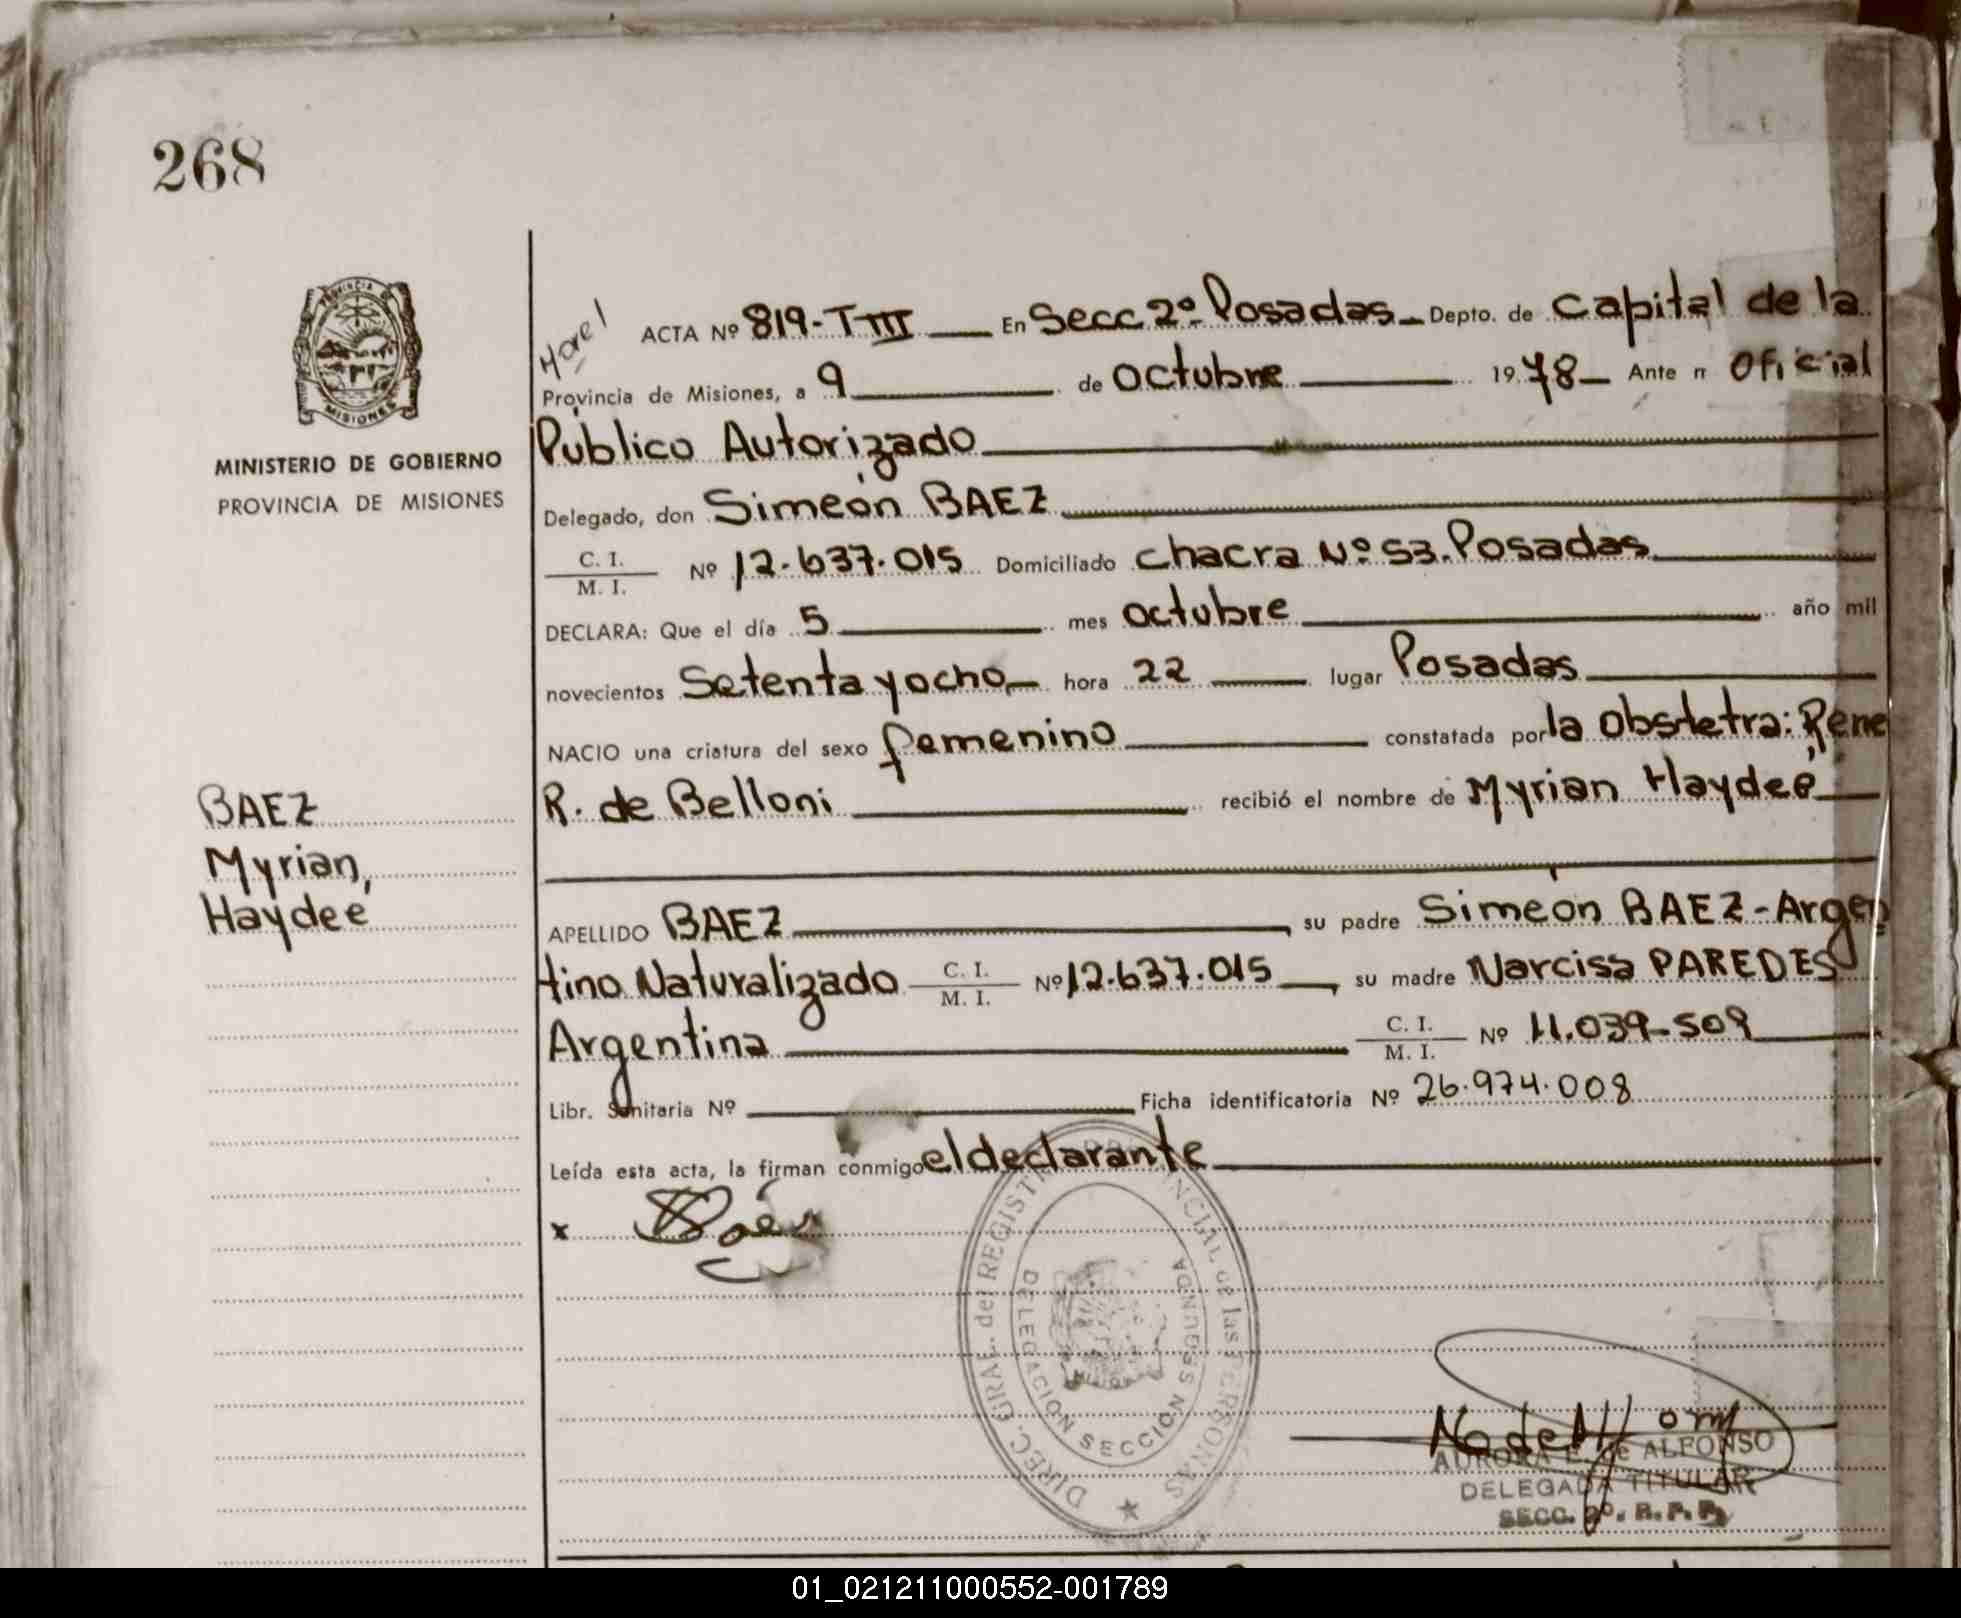 268
PROVINCIA DE
MISIONES
MINISTERIO DE GOBIERNO
PROVINCIA DE MISIONES
ACTA Nº 819-TIII En Secc 2º Posadas Depto. de Capital de la
Provincia de Misiones, a 9 de Octubre 1978 Ante n Oficial
Público Autorizado
Delegado, don Simeón BAEZ
C. I.
M. I. Nº 12.637.015 Domiciliado Chacra Nº 53. Posadas
DECLARA: Que el día 5 mes octubre año mil
novecientos Setenta y ocho hora 22 lugar Posadas
NACIO una criatura del sexo femenino constatada por la Obstetra: Rene
R. de Belloni recibió el nombre de Myrian Haydeé
BAEZ
Myrian,
Haydee
APELLIDO BAEZ su padre Simeón BAEZ-Argen
tino Naturalizado C. I.
M. I. Nº 12.637.015 su madre Narcisa PAREDES
Argentina C. I.
M. I. Nº 11.039-509
Libr. Sanitaria Nº Ficha identificatoria Nº 26.974.008
Leída esta acta, la firman conmigo el declarante
x Báez
DIREC. GRAL. del REGISTRO PROVINCIAL de las PERSONAS
DELEGACION SECCION SEGUNDA
AURORA E. de ALFONSO
DELEGADA TITULAR
SECC. 2º. R. P. P.
01_021211000552-001789